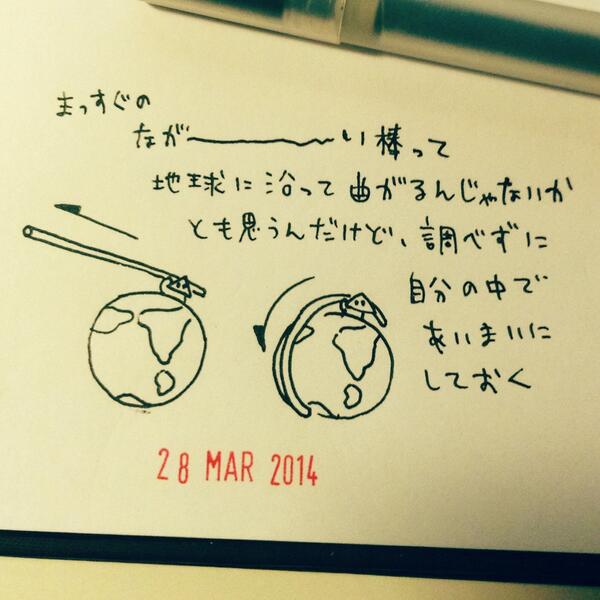 まっすぐの
なが〜い棒って
地球に沿って曲がるんじゃないか
とも思うんだけど、調べずに
自分の中で
あいまいに
しておく
28 MAR 2014